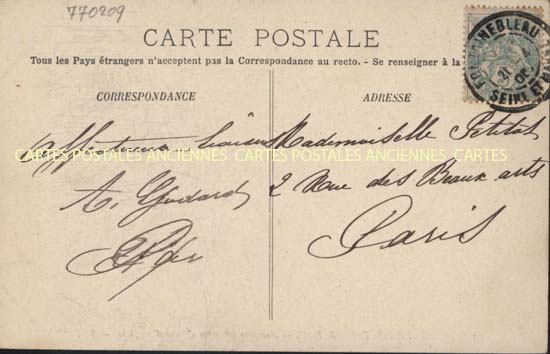 770209
CARTE POSTALE
Tous les Pays étrangers n'acceptent pas la Correspondance au recto. - Se renseigner à la
CORRESPONDANCE
ADRESSE
FONTAINEBLEAU
SEINE ET M
CARTES POSTALES ANCIENNES CARTES POSTALES ANCIENNES CARTES
Mademoiselle Petitot
2 Rue des Beaux arts
Paris
A. Godard